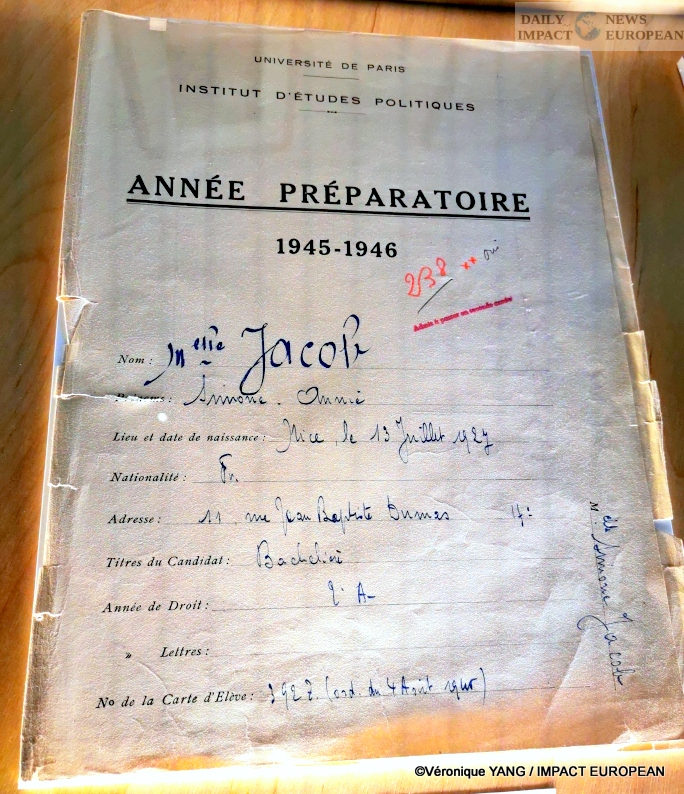 DAILY NEWS
IMPACT EUROPEAN
UNIVERSITÉ DE PARIS
INSTITUT D'ÉTUDES POLITIQUES
ANNÉE PRÉPARATOIRE
1945-1946
238 ** oui
Admis à passer en seconde année
Nom : Melle Jacob
Prénoms : Simone - Annie
Lieu et date de naissance : Nice, le 13 Juillet 1927
Nationalité : Fr.
Adresse : 11, rue Jean Baptiste Dumas 17e
Titres du Candidat : Bachelière
Année de Droit : A-
» Lettres :
No de la Carte d'Elève : (ord. du 4 Août 1945)
Melle Simone Jacob
©Véronique YANG / IMPACT EUROPEAN